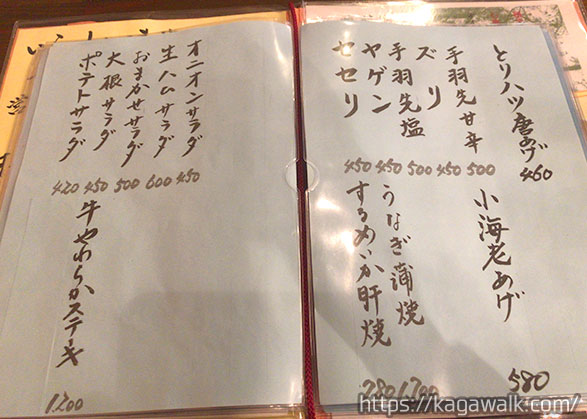 とりハツ唐あげ 460
手羽先甘辛 500
ズリ 450
手羽先塩 500
ヤゲン 450
セセリ 450
小海老あげ 580
うなぎ蒲焼 1,700
するめいか肝焼 780
オニオンサラダ 450
生ハムサラダ 600
おまかせサラダ 500
大根サラダ 450
ポテトサラダ 420
牛やわらかステーキ 1,200
https://kagawalk.com/